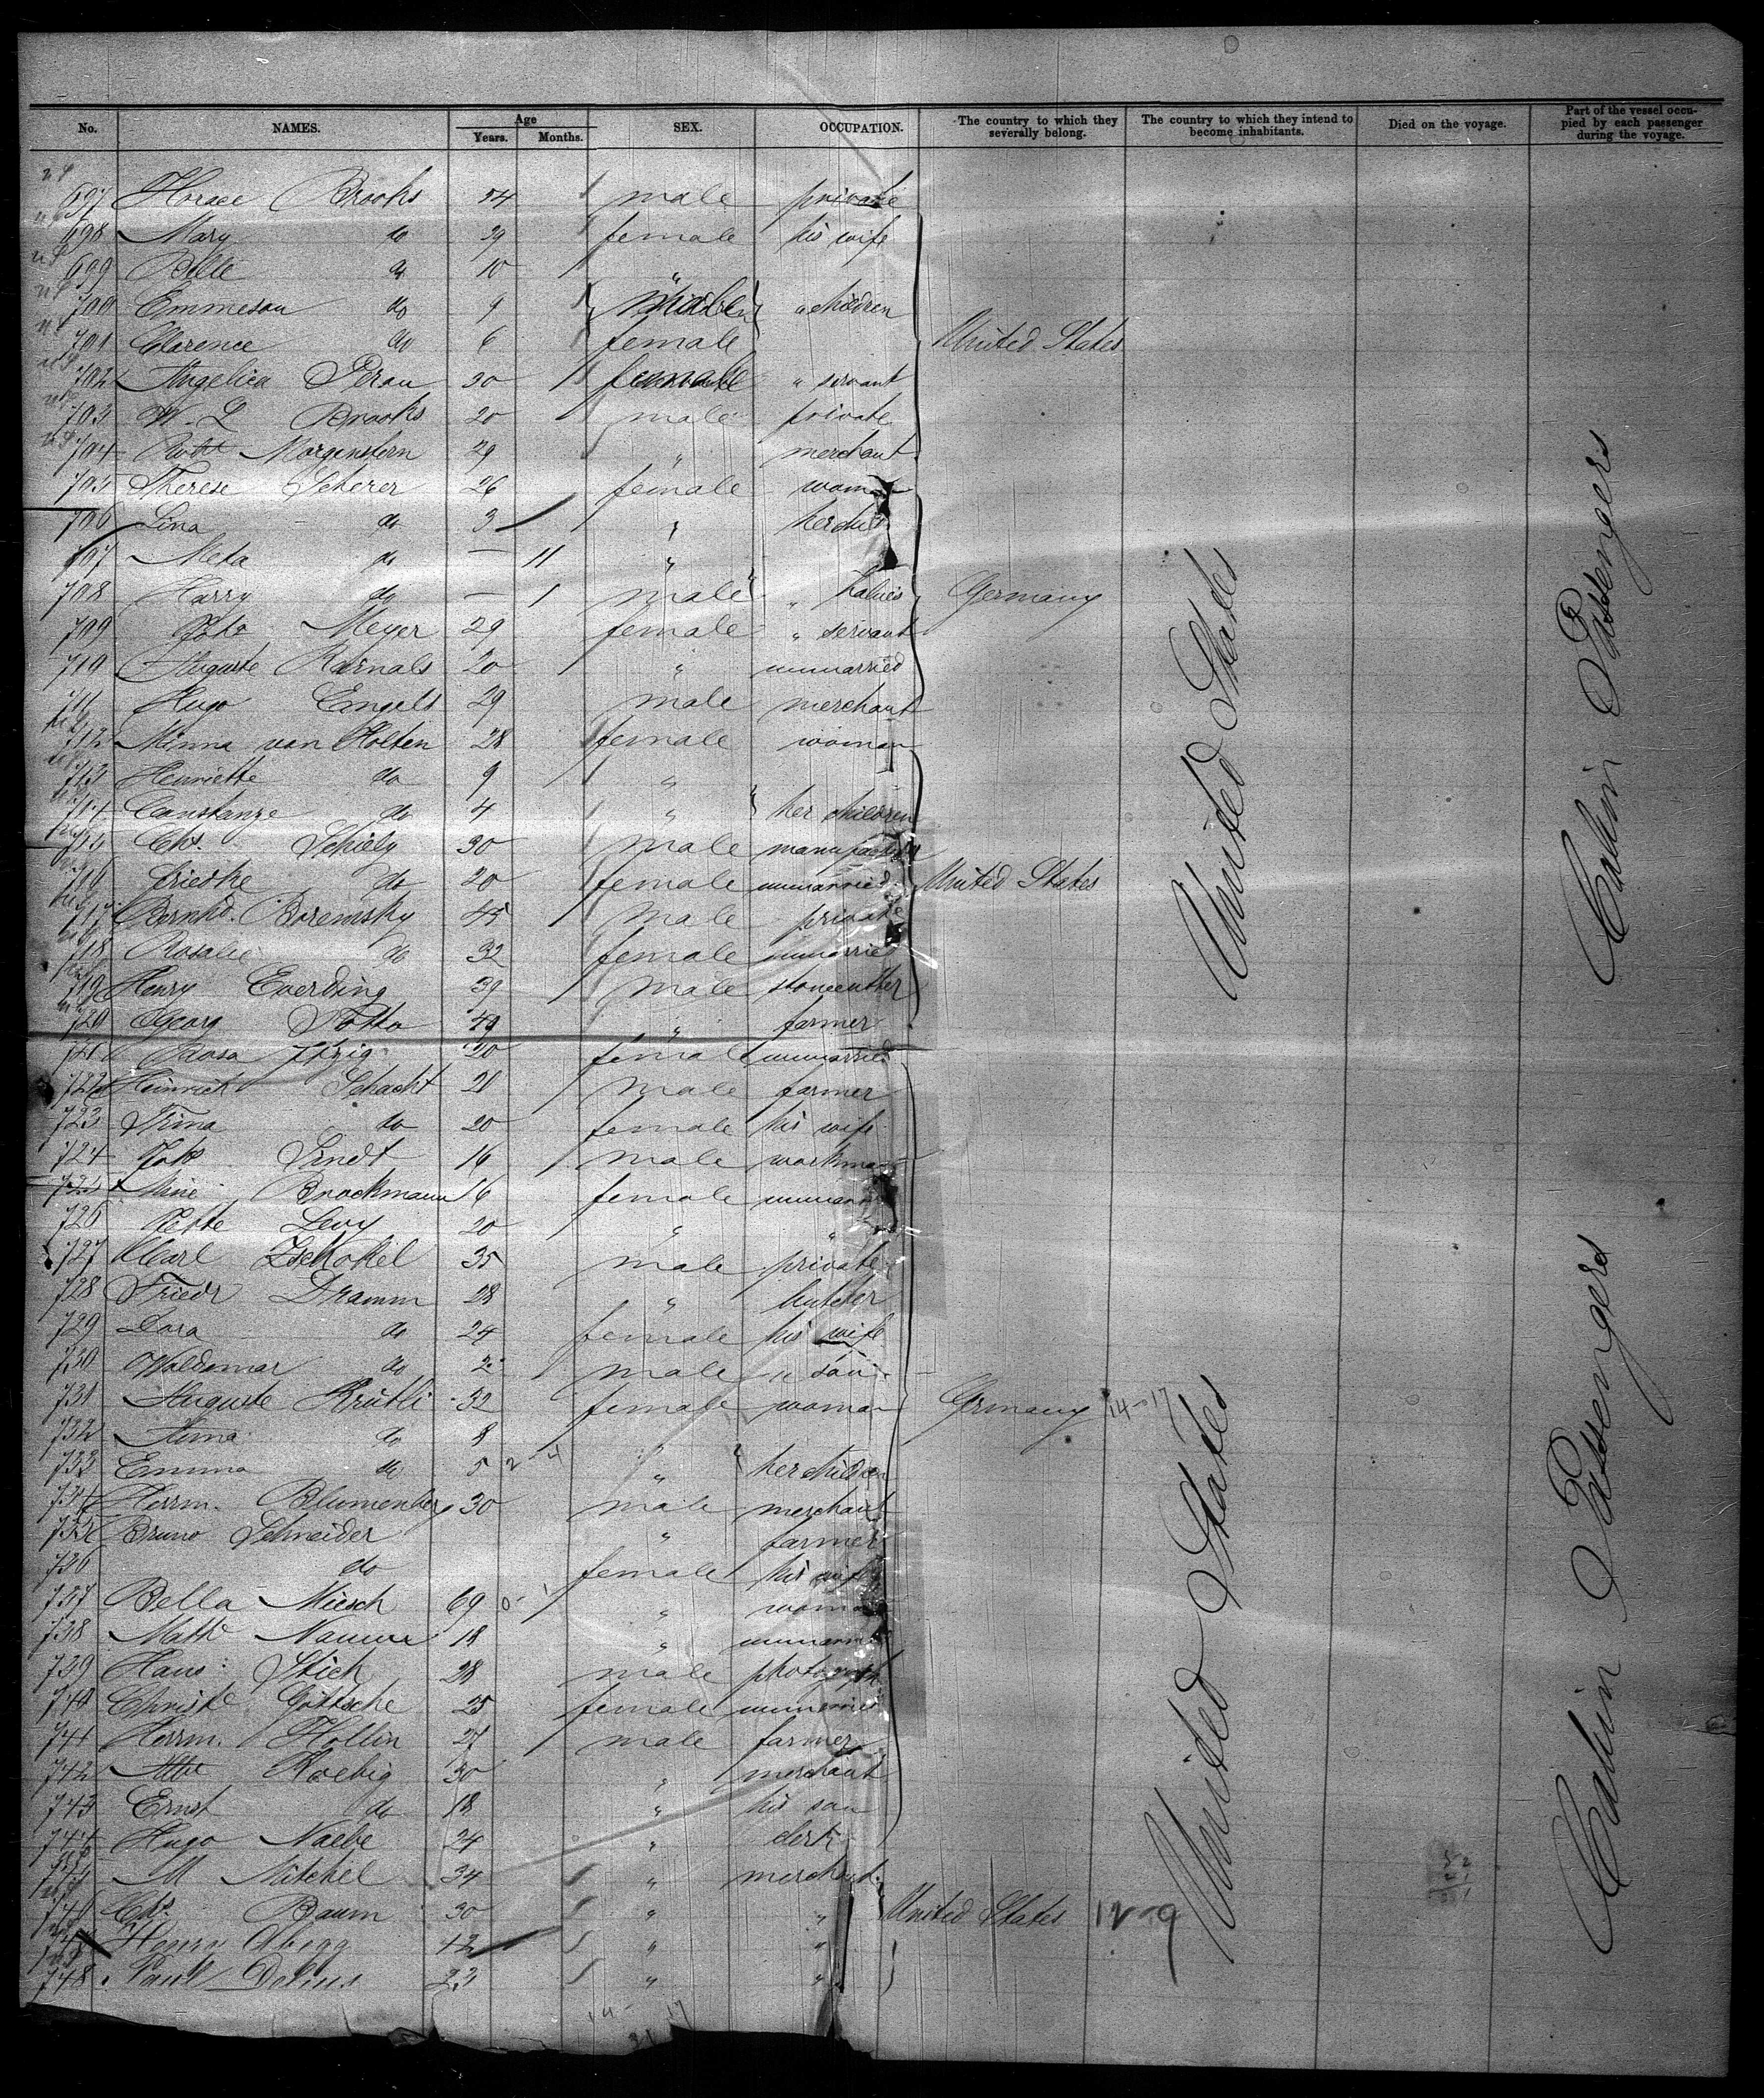 No. NAMES. Age Years. Months. SEX. OCCUPATION. The country to which they severally belong. The country to which they intend to become inhabitants. Died on the voyage. Part of the vessel occupied by each passenger during the voyage.
697 Horace Brooks 54 male private
698 Mary do 39 female his wife
699 Belle do 10 "
700 Emmeson do 9 " children
701 Clarence do 6 female United States
702 Angelica Perau 30 female " servant
703 W. L Brooks 20 male private
704 Robt Morgenstern 29 " merchant
705 Therese Scherer 26 female woman
706 Lina do 3 "
707 Meta do — 11 "
708 Harry do — 1 male " babies Germany
709 Meyer 29 female " servant
710 Auguste Karnals 20 " unmarried
711 Hugo Engels 29 male merchant
712 Minna van Holten 28 female woman
713 Henriette do 9 "
714 Constanze do 4 " her children
715 Chr. Schiely 30 male
716 Friedke do 20 female unmarried United States
717 Bernhd. Boremsky 45 male private
718 Rosalie do 32 female unmarried
719 Henry Everding 39 male stonecutter
720 Georg Totto 49 " farmer
721 Rosa Itzig 20 female unmarried
722 Heinrich Schacht 21 male farmer
723 Trina do 20 female his wife
724 Joh Lindt 16 male workman
725 Mine Brockmann 16 female unmarried
726 Levy 20 " "
727 Carl Zschokel 35 male private
728 Friedr Dramm 28 " butcher
729 Dora do 24 female his wife
730 Waldemar do 2 male " son
731 Auguste Krütli 32 female woman Germany 14-17
732 Anna do 8
733 Emma do 5 2 4 " her children
734 Herrm. Blumenberg 30 male merchant
735 Bruno Schneider " farmer
736 do female his wife
737 Bella Miesch 69 0 " woman
738 Mathe 18 " unmarried
739 Hans Stich 28 male photograph
740 Christe Göttsche 25 female unmarried
741 Herrm. Hollin 21 male farmer
742 Roebig 50 " merchant
743 Ernst do 18 " his son
744 Hugo Naebe 24 " clerk
745 M Mitchel 34 " merchant
746 Chr. Baum 30 " " United States 12-9
Henry Abegg 42 " "
748 Paul Delius 23 " "
United States
Cabin Passengers
United States
Cabin Passengers
14- 17
31